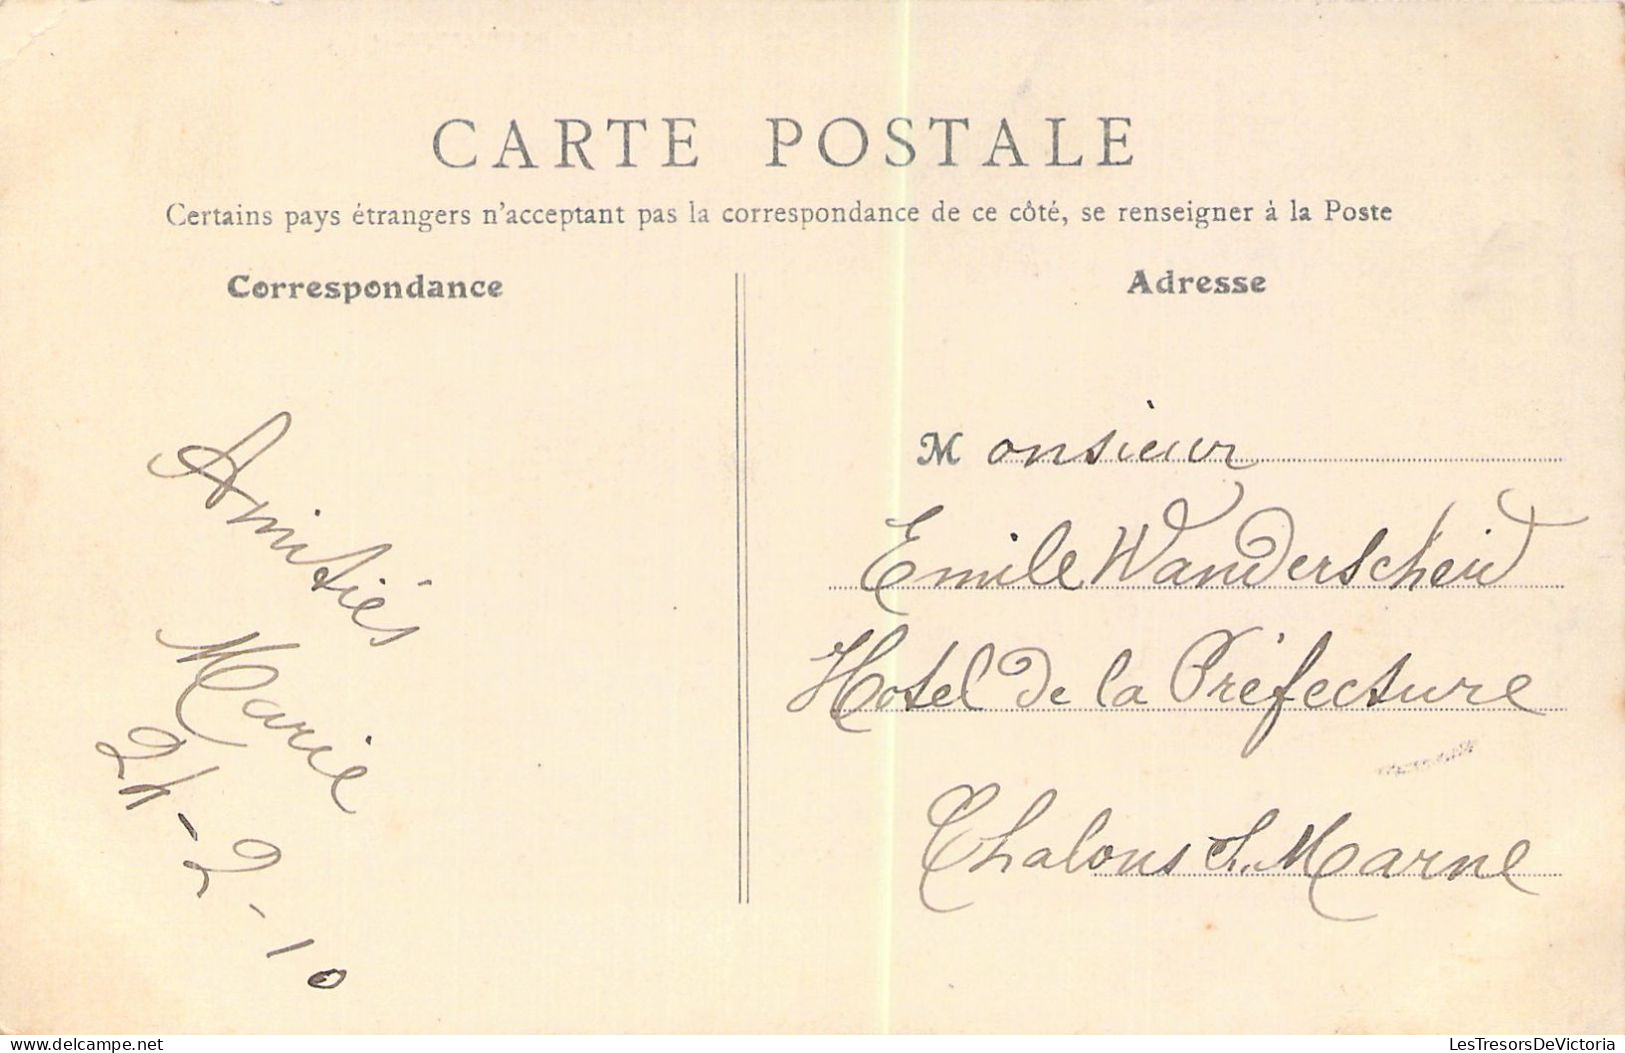 CARTE POSTALE
Certains pays étrangers n'acceptant pas la correspondance de ce côté, se renseigner à la Poste
Correspondance
Amitiés
Marie
24-2-10
Adresse
Monsieur
Emile Wanderscheid
Hotel de la Préfecture
Chalons s. Marne
delcampe.net
LesTresorsDeVictoria